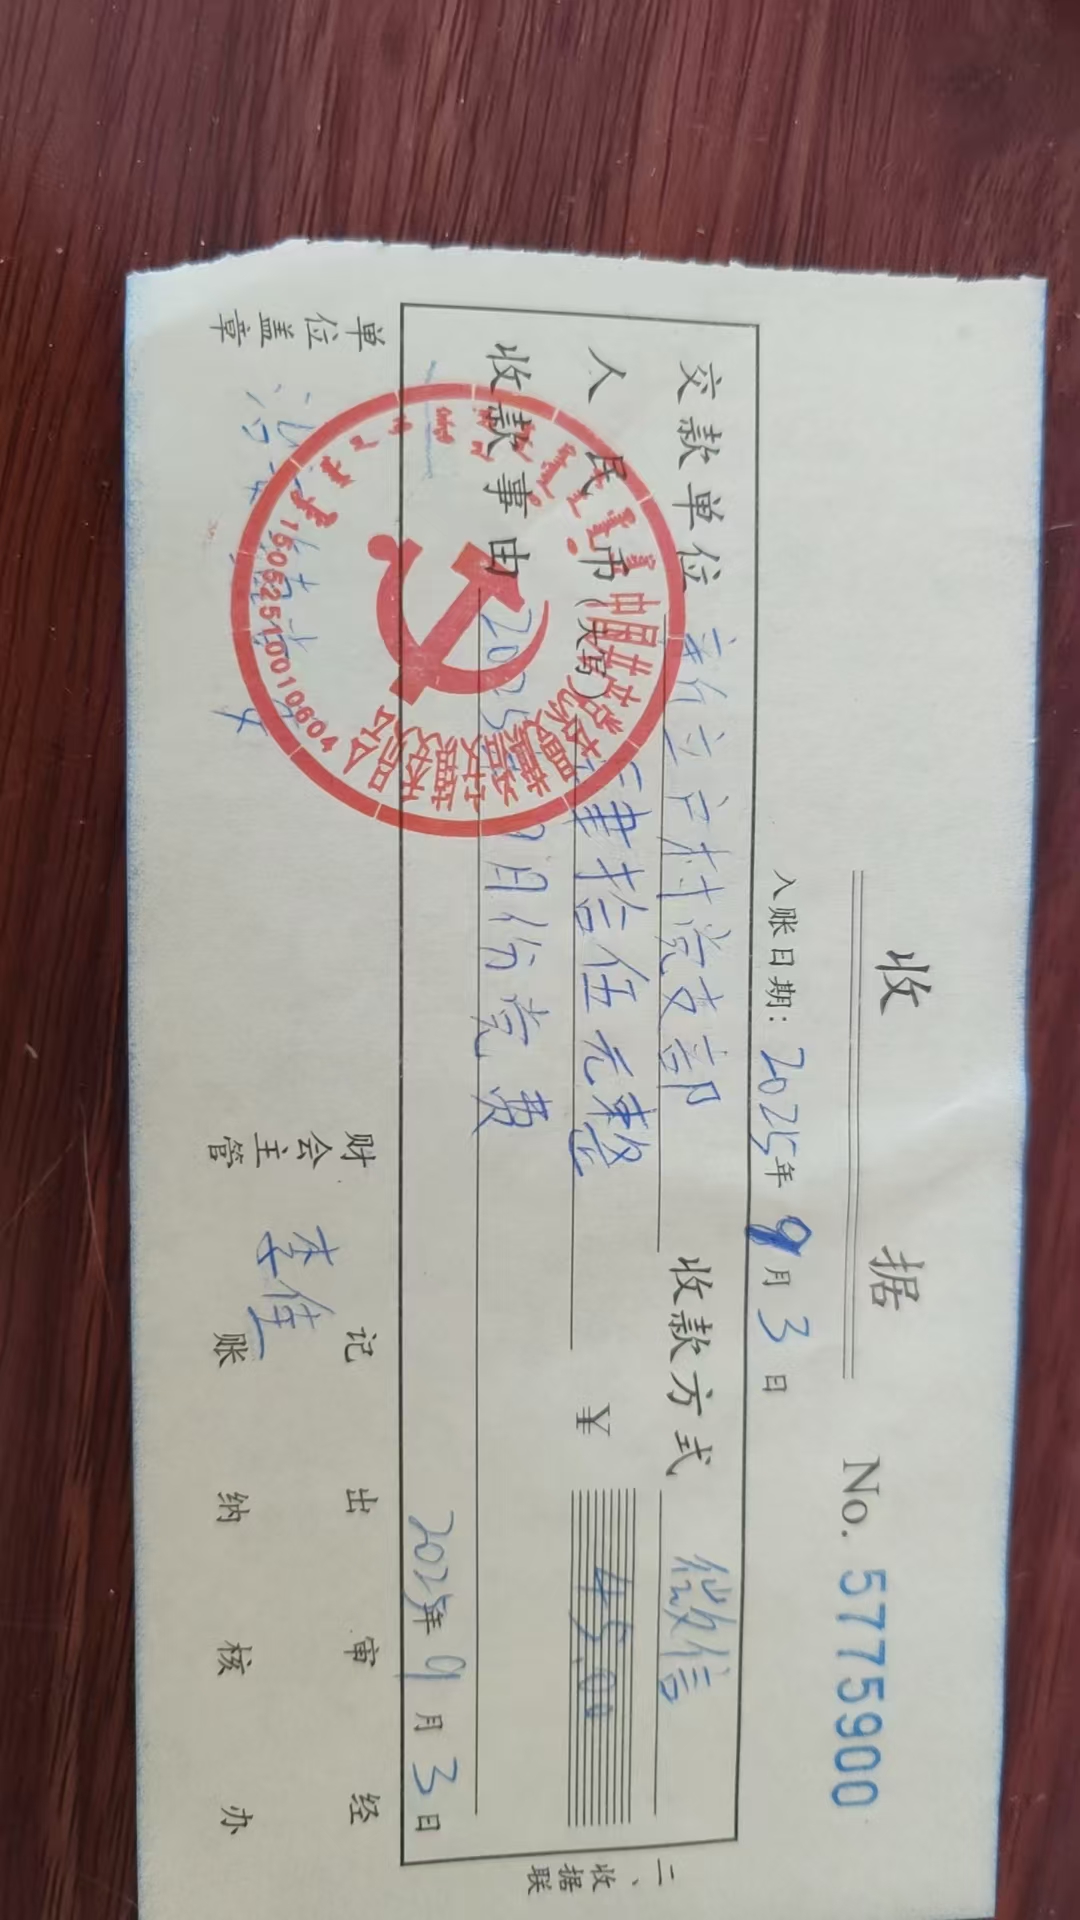 收 据 No. 5775900
入账日期: 2025年 9月 3日
交款单位 立户村党支部 收款方式 微信
人民币(大写) 肆拾伍元整 ¥ 45.00
收款事由 2025 9月份党费
2025年 9月 3日
二、收据联
单位盖章 财会主管 记账 出纳 审核 经办
李佳
15052510010604